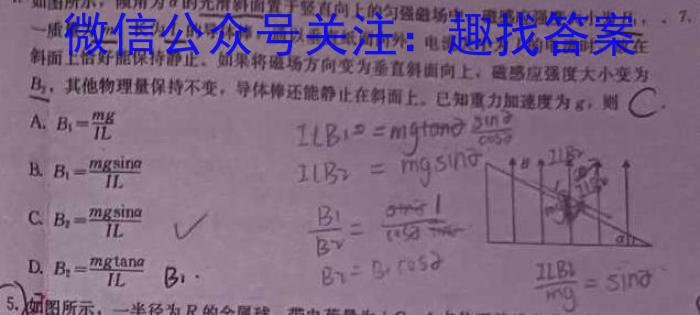 如图所示，倾角为α的光滑斜面置于竖直向上的匀强磁场中，磁感应强度大小为B₁，
7.
微信公众号关注：趣找答案
一质
斜面上恰好能保持静止。如果将磁场方向变为垂直斜面向上，磁感应强度大小变为
B₂，其他物理量保持不变，导体棒还能静止在斜面上。已知重力加速度为g，则 C.
A. B₁=mg/IL
B. B₁=mgsinα/IL
C. B₂=mgsinα/IL ✓
D. B₂=mgtanα/IL B₁.
ILB₁ = mgtan∂ sin∂/cos∂
ILB₂ = mgsin∂
B₁/B₂ = 1/cos∂
B₂ = B₁cos∂
B ILB₂
mg
α
ILB₂/mg = sin∂
5. 如图所示，一半径为R的金属球，带电荷量为